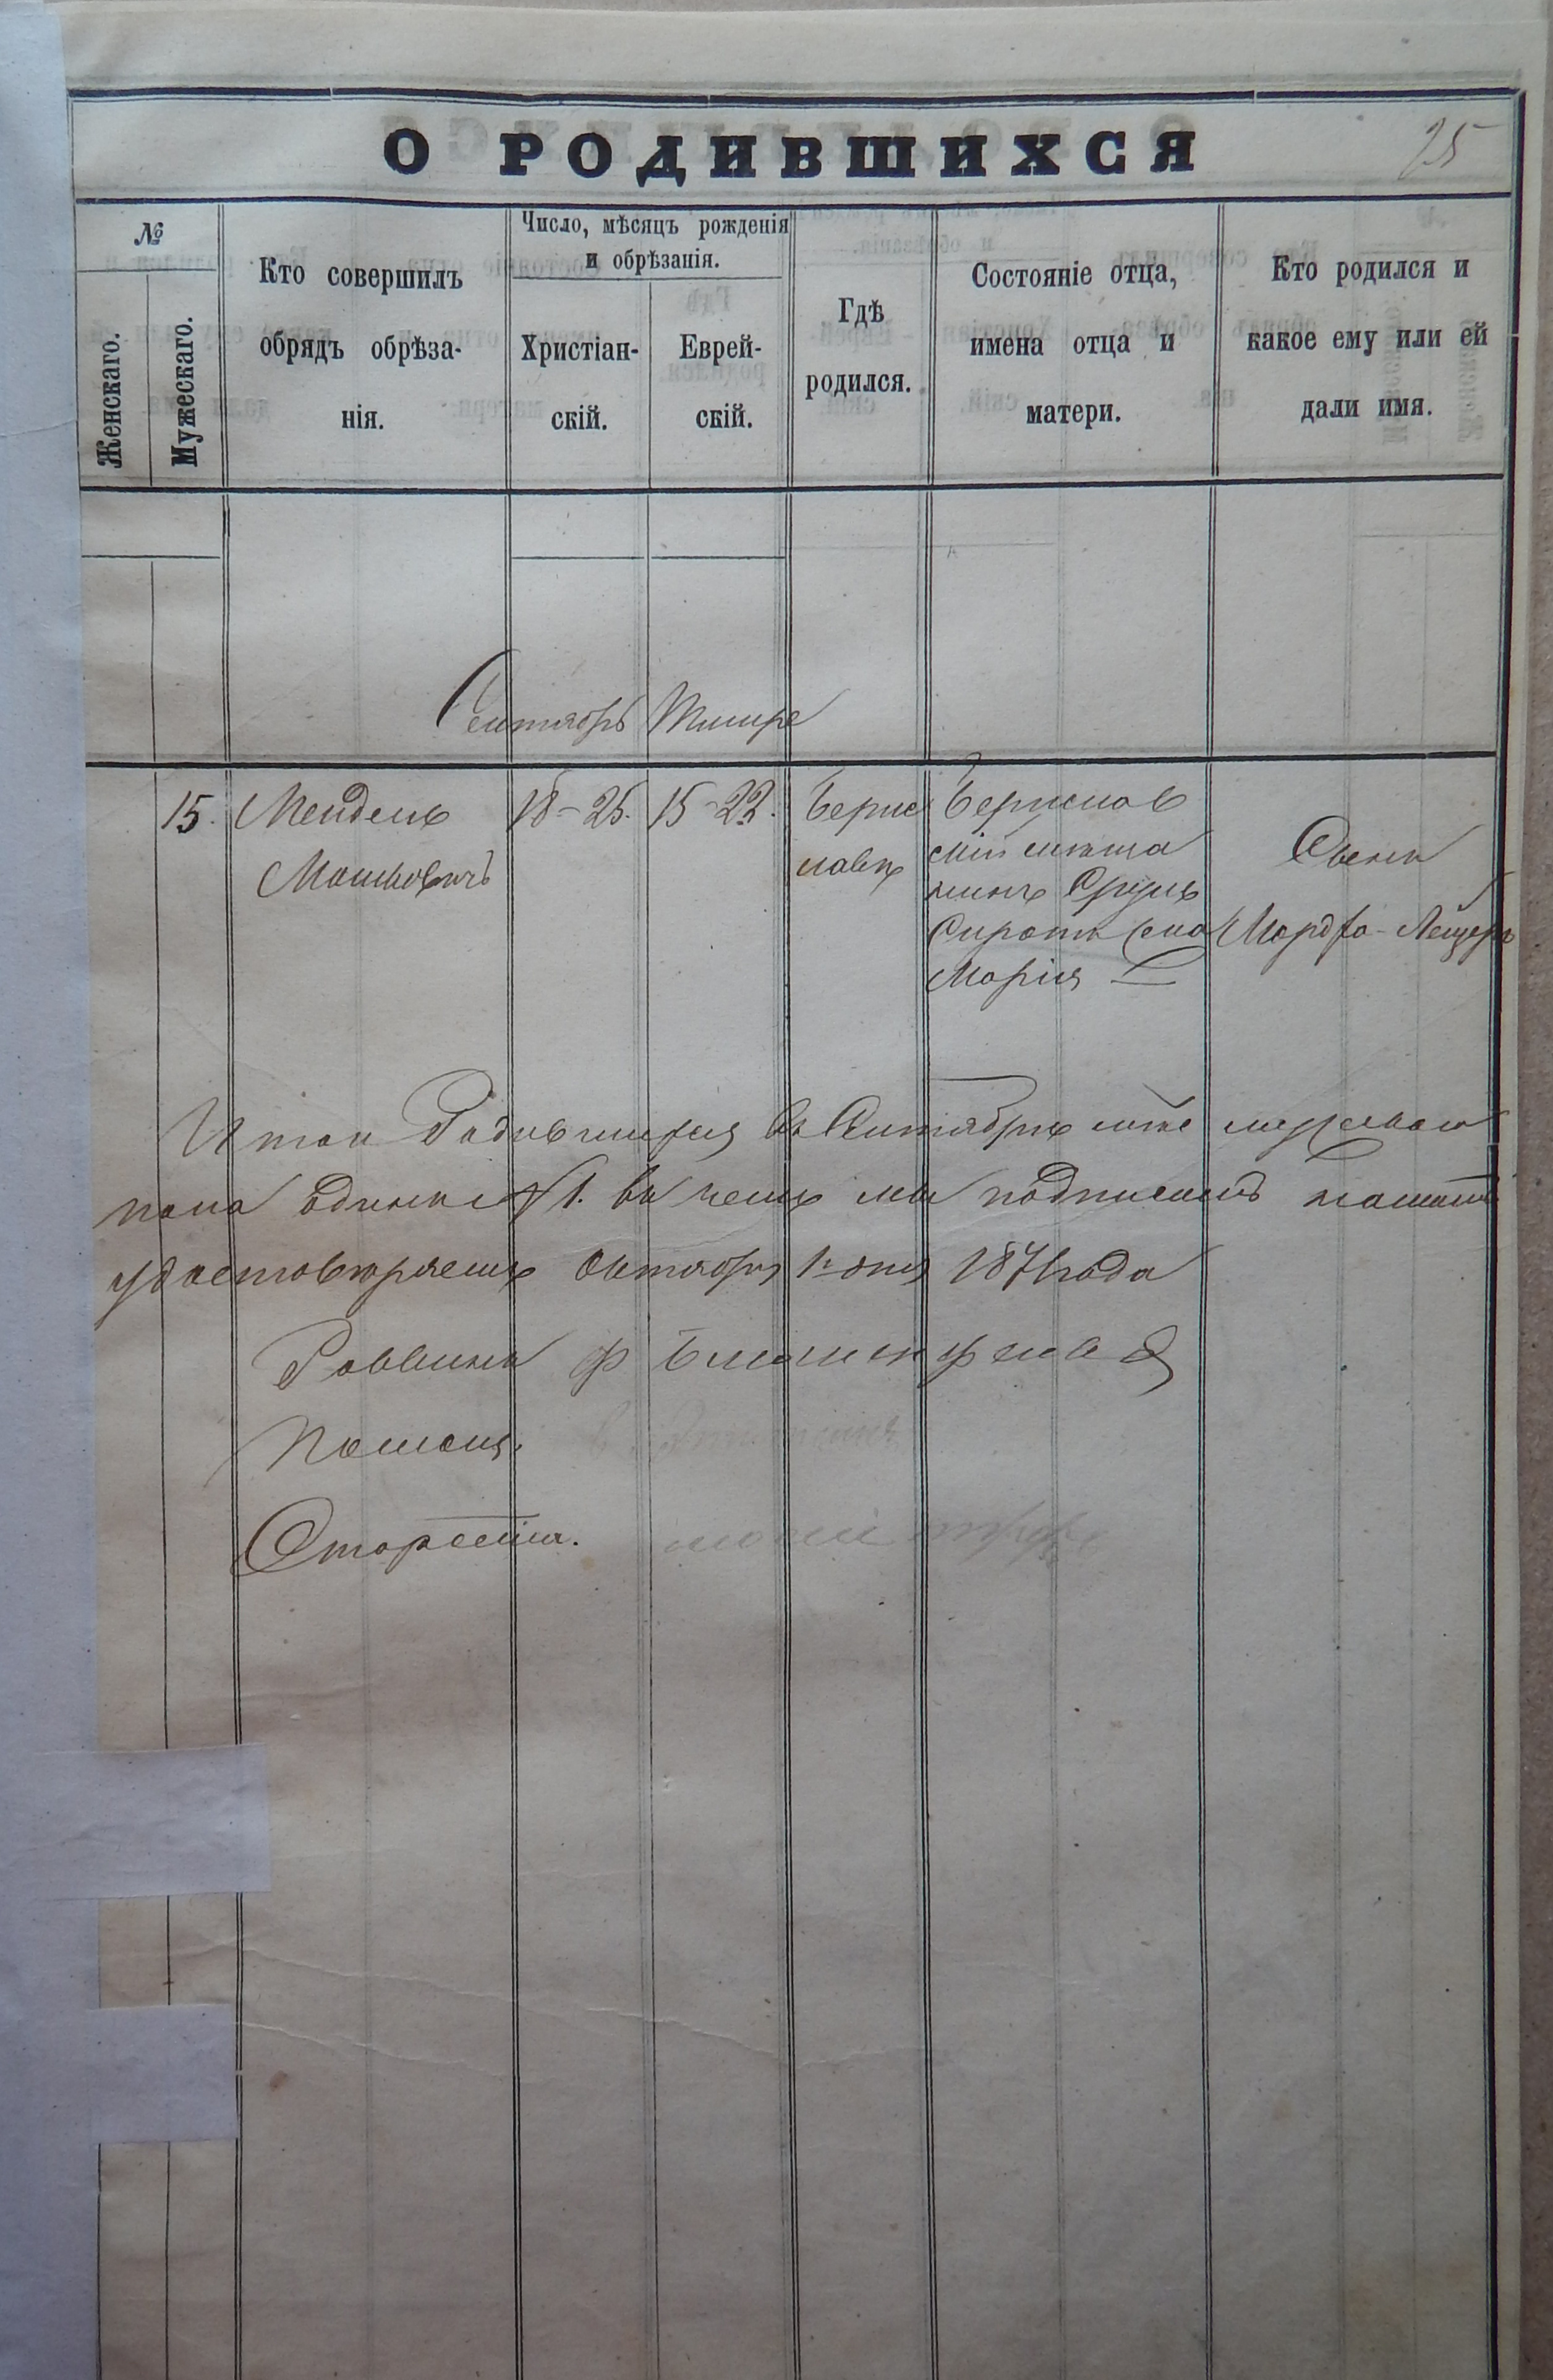 О РОДИВШИХСЯ
25
№
Женскаго.
Мужескаго.
Кто совершилъ
обрядъ обрѣза-
нія.
Число, мѣсяцъ рожденія
и обрѣзанія.
Христіан-
скій.
Еврей-
скій.
Гдѣ
родился.
Состояніе отца,
имена отца и
матери.
Кто родился и
какое ему или ей
дали имя.
Сентябрь Тишре
15.
Мендель
Машковичъ
18-25.
15-22.
Берис
лавѣ
Берислав
скій мѣща
нинъ Сруль
Сирота жена
Марія
Сынъ
Мордхо-Лейзеръ
Итого Родившихся въ Сентябрѣ м-цѣ мужеска
пола одинъ 1. въ чемъ мы подписомъ нашимъ
удостовѣряемъ Октября 1го дня 1871 года
Раввинъ Ф
Помощ.
Староста.